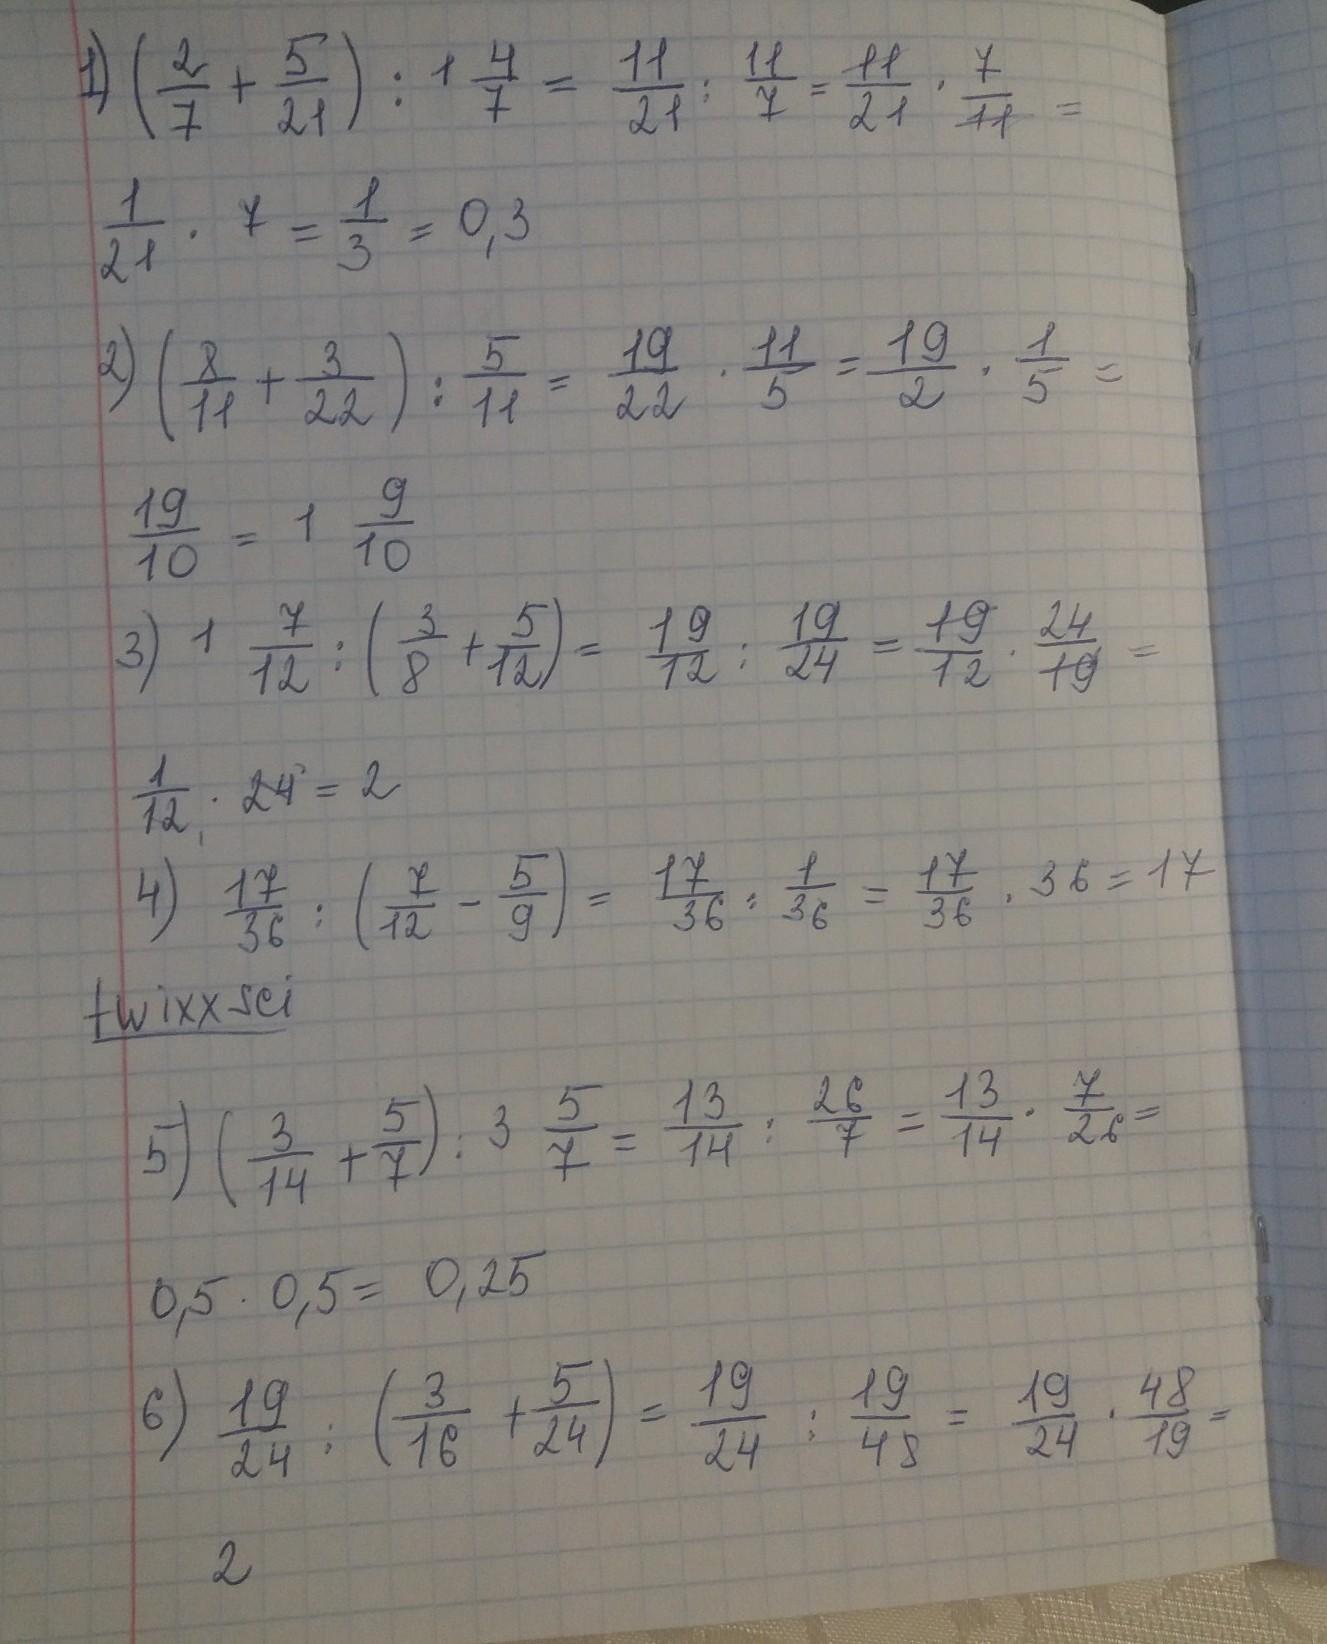 1) (2/7 + 5/21) : 1 4/7 = 11/21 : 11/7 = 11/21 · 7/11 =
1/21 · 7 = 1/3 = 0,3
2) (8/11 + 3/22) : 5/11 = 19/22 · 11/5 = 19/2 · 1/5 =
19/10 = 1 9/10
3) 1 7/12 : (3/8 + 5/12) = 19/12 : 19/24 = 19/12 · 24/19 =
1/12 · 24 = 2
4) 17/36 : (7/12 - 5/9) = 17/36 : 1/36 = 17/36 · 36 = 17
twixxsci
5) (3/14 + 5/7) : 3 5/7 = 13/14 : 26/7 = 13/14 · 7/26 =
0,5 · 0,5 = 0,25
6) 19/24 : (3/16 + 5/24) = 19/24 : 19/48 = 19/24 · 48/19 =
2